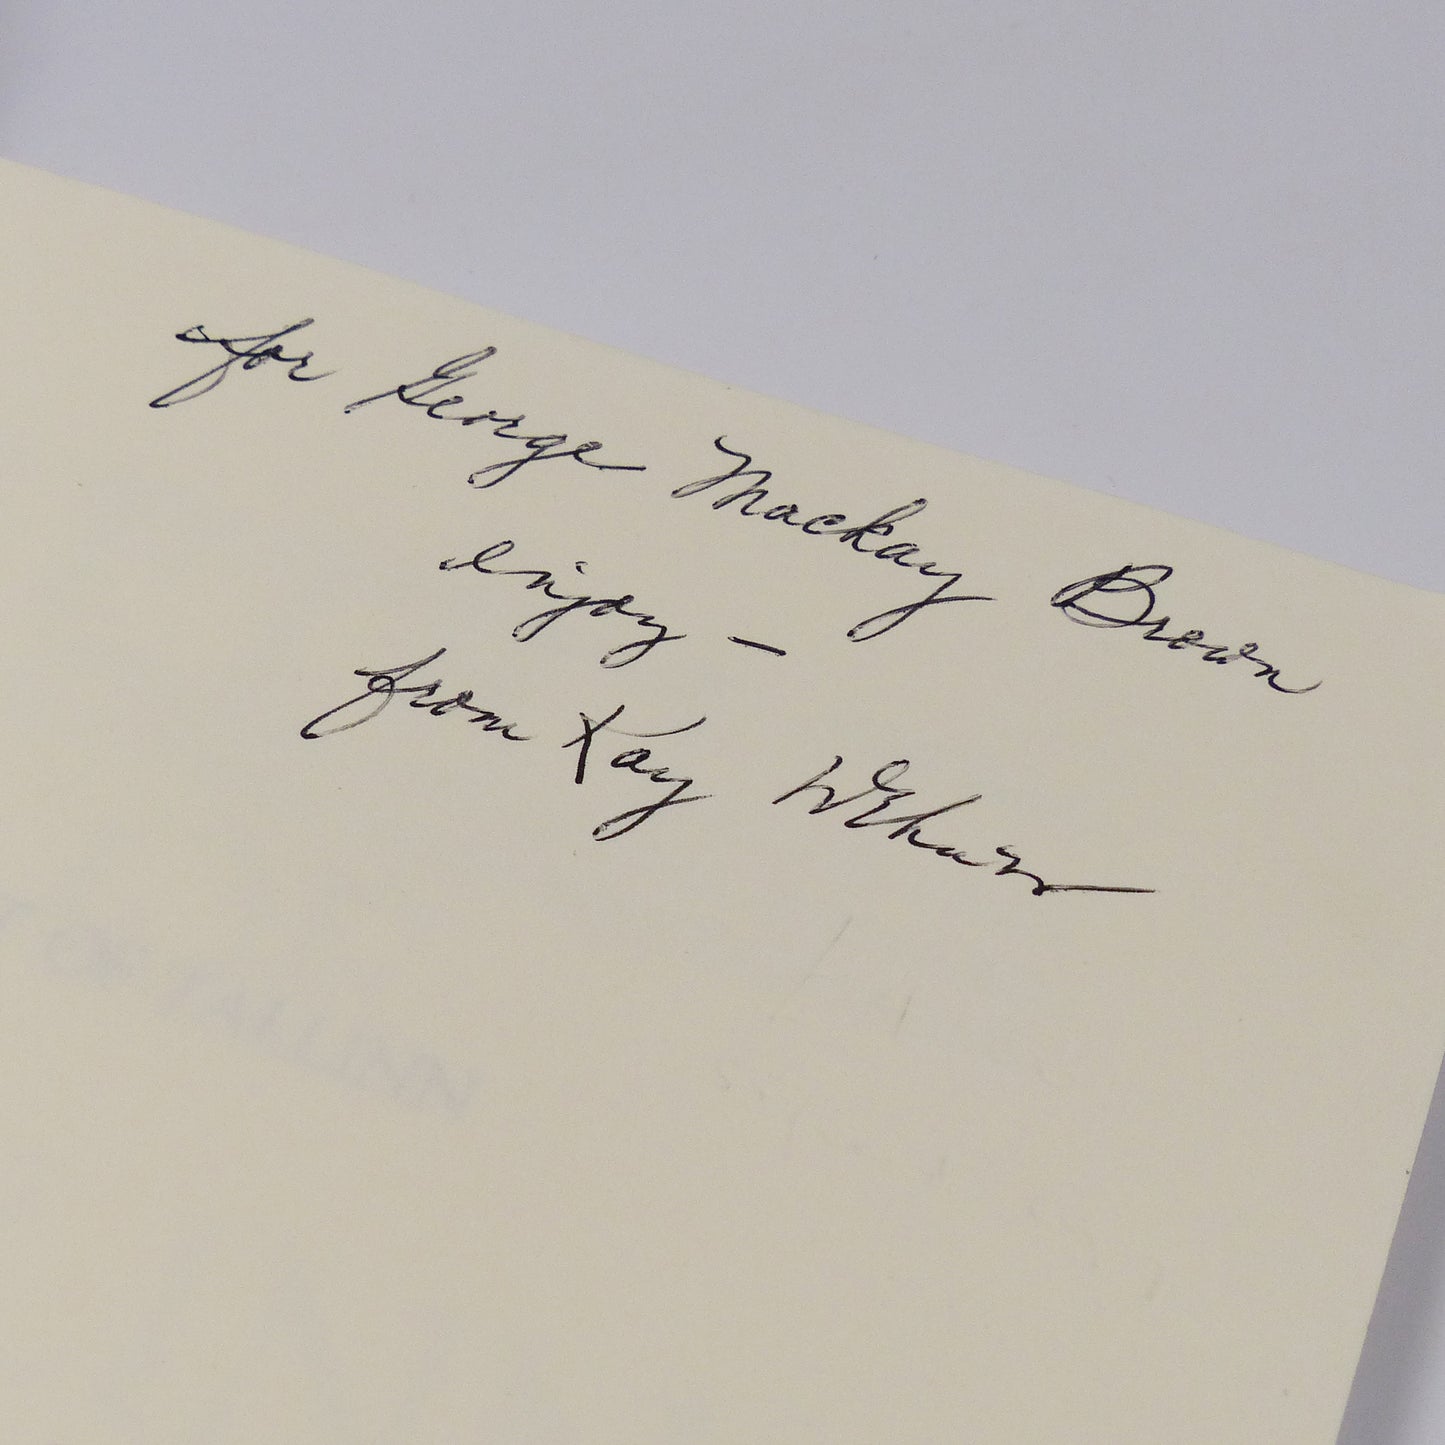 for George Mackay Brown
enjoy —
from Kay